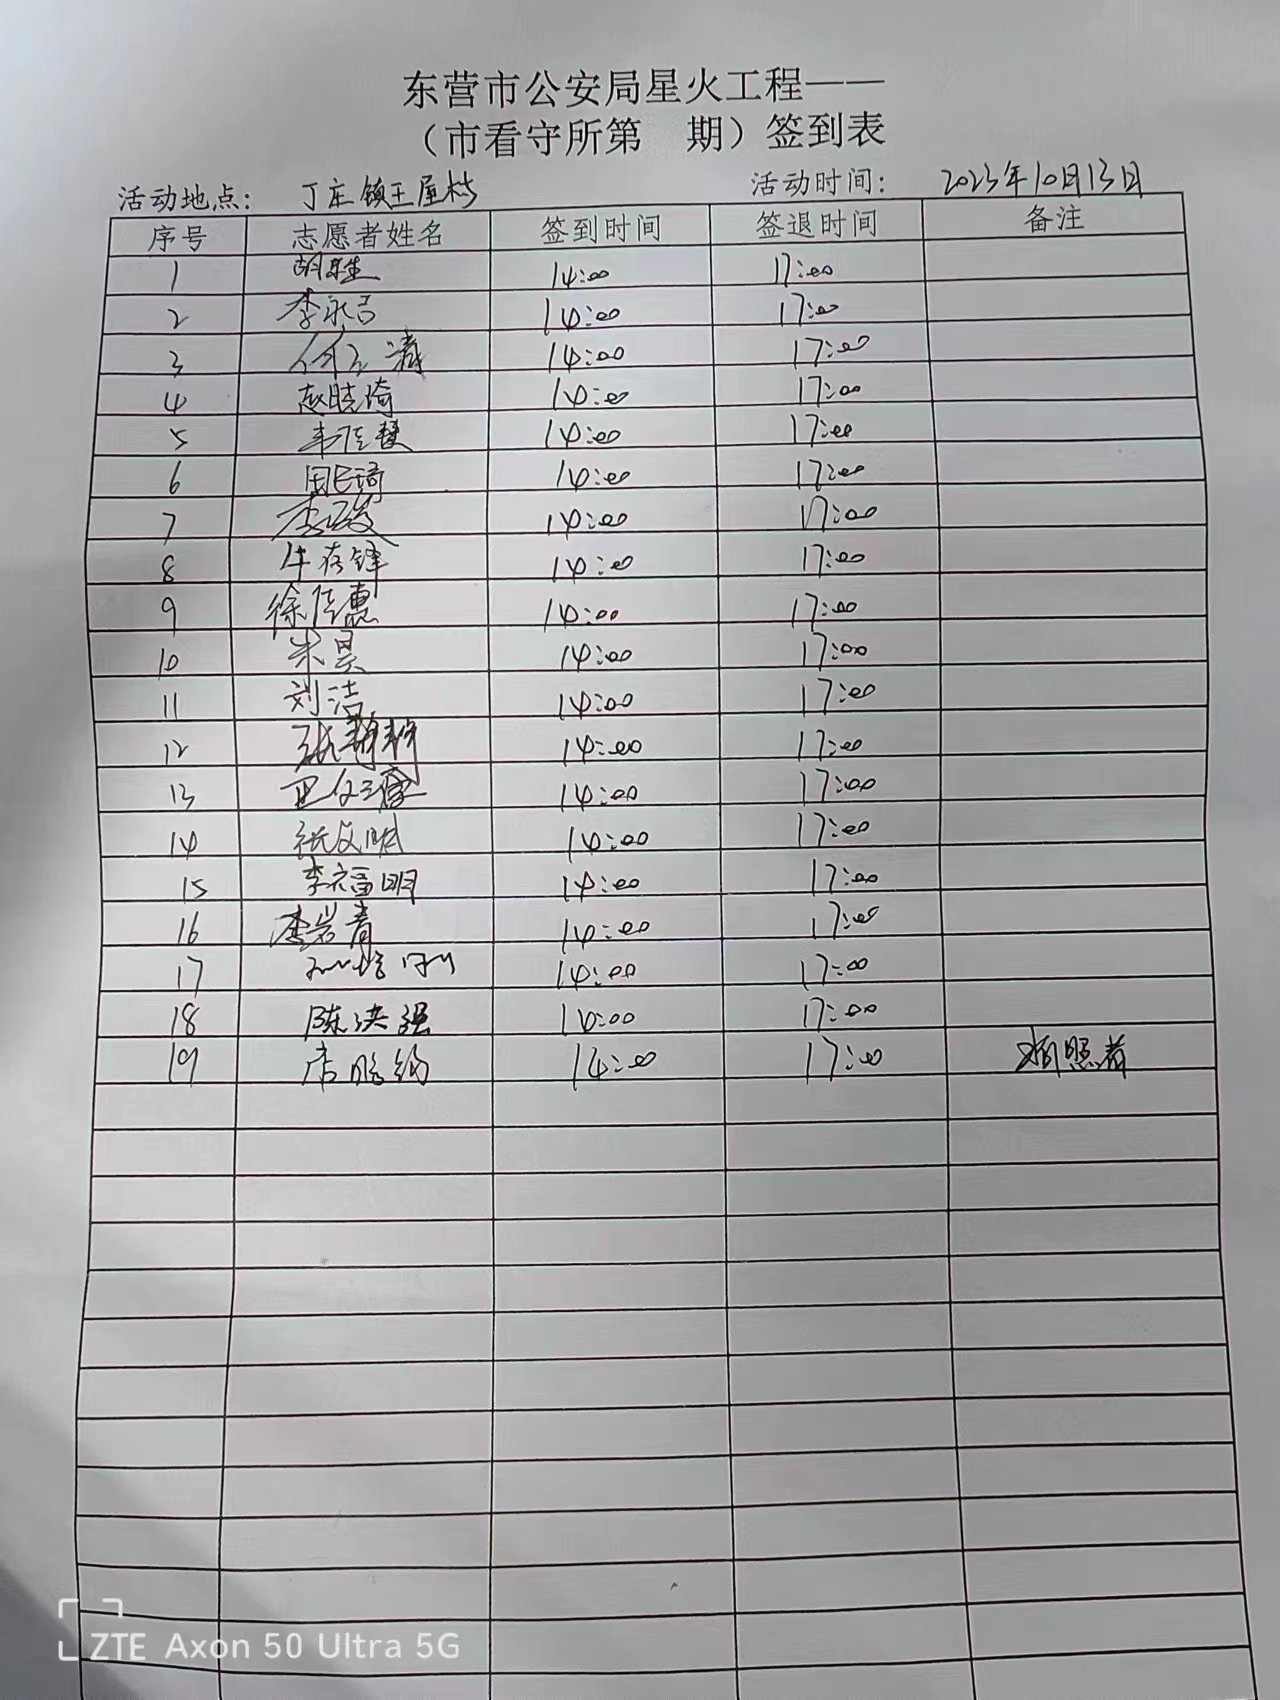 东营市公安局星火工程——
（市看守所第 期）签到表
活动地点： 丁庄镇王屋村 活动时间： 2023年10月13日
序号 志愿者姓名 签到时间 签退时间 备注
1 14:00 17:00
2 李永吉 14:00 17:00
3 14:00 17:00
4 赵晓琦 14:00 17:00
5 韦佳慧 14:00 17:00
6 14:00 17:00
7 14:00 17:00
8 牛存锋 14:00 17:00
9 徐佳惠 14:00 17:00
10 朱昊 14:00 17:00
11 刘洁 14:00 17:00
12 14:00 17:00
13 14:00 17:00
14 张文明 14:00 17:00
15 李福明 14:00 17:00
16 李岩青 14:00 17:00
17 14:00 17:00
18 陈洪强 14:00 17:00
19 14:00 17:00 拍照者
ZTE Axon 50 Ultra 5G